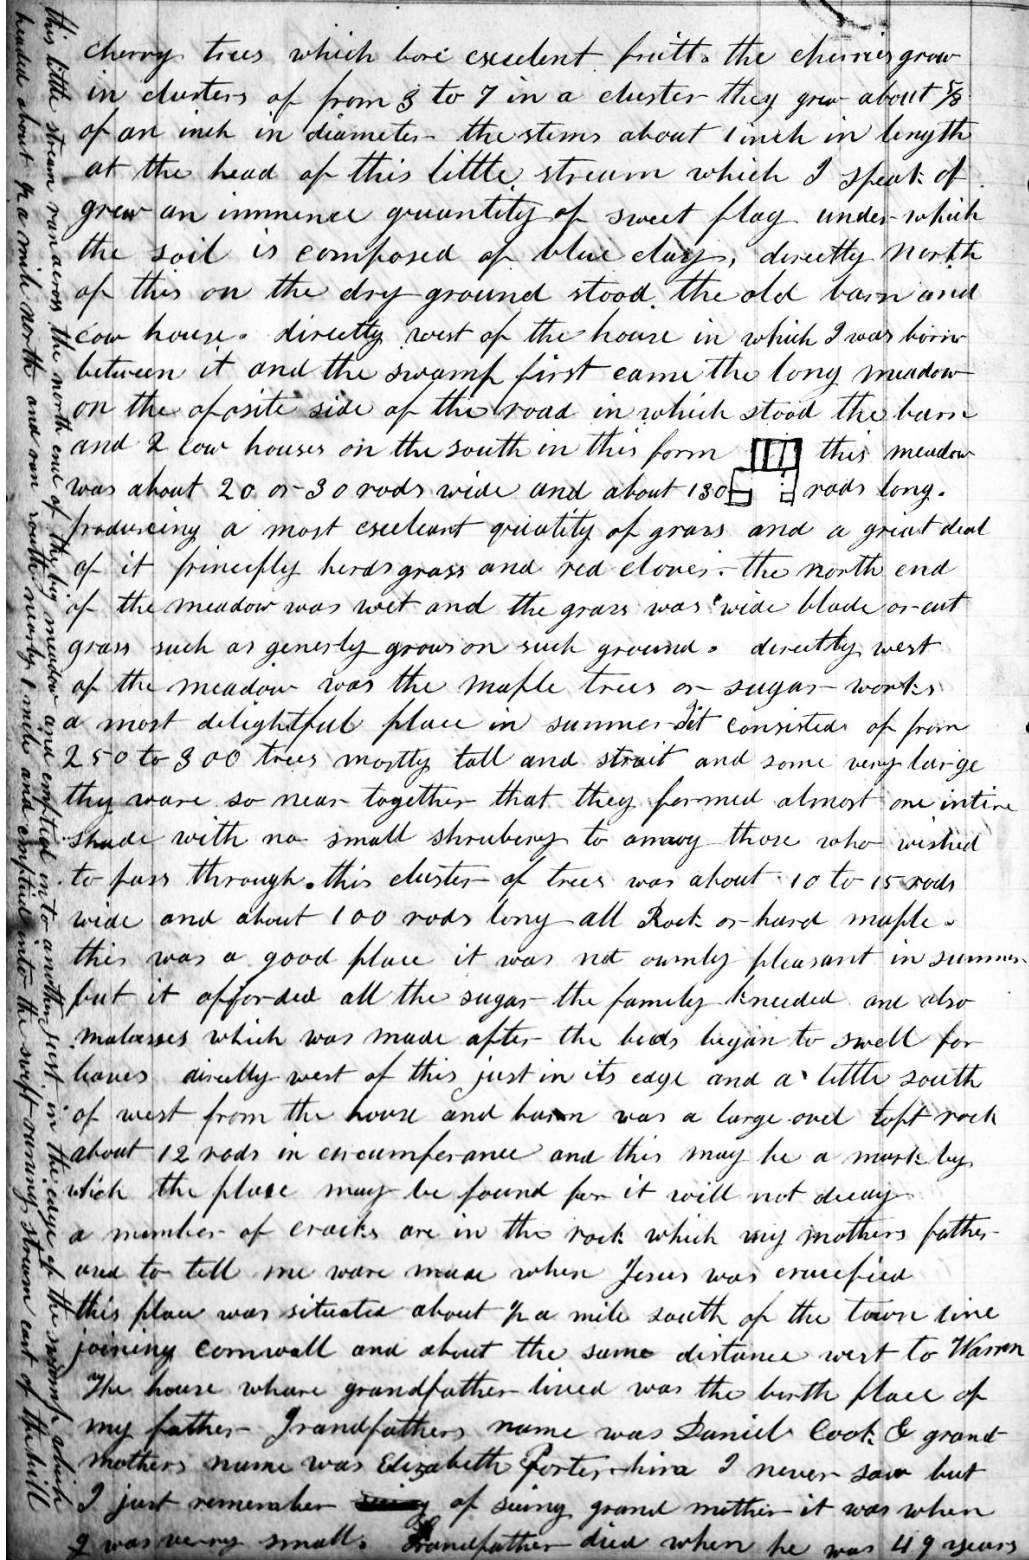 cherry trees which bore excelent fruitt. the cherries grow
in clusters of from 3 to 7 in a cluster they grew about 5/8
of an inch in diameter the stems about 1 inch in length
at the head of this little stream which I speak of
grew an immence quantity of sweet flag under which
the soil is composed of blue clay, directly north
of this on the dry ground stood the old barn and
cow house. directly west of the house in which I was born
between it and the swamp first came the long meadow
on the oposite side of the road in which stood the barn
and 2 cow houses on the south in this form this meadow
was about 20 or 30 rods wide and about 130 rods long.
producing a most excelant quantity of grass and a great deal
of it principly herdsgrass and red clover. the north end
of the meadow was wet and the grass was wide blade or cut
grass such as generly grows on such ground. directly west
of the meadow was the maple trees or sugar works
a most delightful place in summer it consisted of from
250 to 300 trees mostly tall and strait and some very large
they ware so near together that they formed almost one intire
shade with no small shrubery to annoy those who wished
to pass through. this cluster of trees was about 10 to 15 rods
wide and about 100 rods long all Rock or hard maple.
this was a good place it was not ownly pleasant in summer
but it afforded all the sugar the family kneeded and also
molasses which was made after the buds began to swell for
leaves directly west of this just in its edge and a little south
of west from the house and barn was a large ovel topt rock
about 12 rods in circumferance and this may be a mark by
which the place may be found for it will not decay
a number of cracks are in the rock which my mothers father
used to tell me ware made when Jesus was crucified
this place was situated about 1/2 a mile south of the town line
joining Cornwall and about the same distance west to Warren
The house whare grandfather lived was the birth place of
my father Grandfathers name was Daniel Cook & grand
mothers name was Elizabeth Porter him I never saw but
I just remember of seing grand mother it was when
I was verry small. Grandfather died when he was 49 years
this little stream ran across the north end of the big meadow and emptied into another just in the edge of the swamp which
headed about 1/2 a mile north and ran south nearly 1 mile and emptied into the swift running stream east of the hill